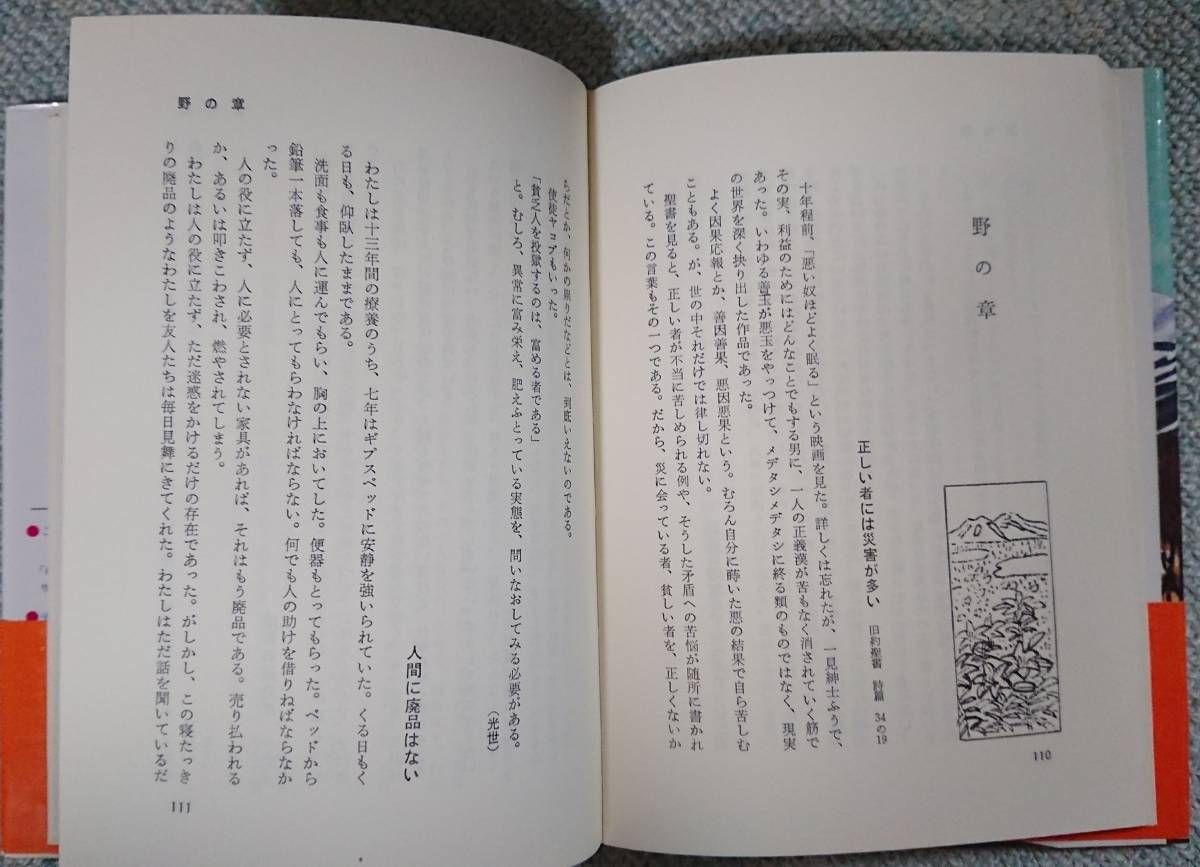 野の章
正しい者には災害が多い
旧約聖書 詩篇 34の19
十年程前、「悪い奴ほどよく眠る」という映画を見た。詳しくは忘れたが、一見紳士ふうで、
その実、利益のためにはどんなことでもする男に、一人の正義漢が苦もなく消されていく筋で
あった。いわゆる善玉が悪玉をやっつけて、メデタシメデタシに終る類のものではなく、現実
の世界を深く抉り出した作品であった。
よく因果応報とか、善因善果、悪因悪果という。むろん自分に蒔いた悪の結果で自ら苦しむ
こともある。が、世の中それだけでは律し切れない。
聖書を見ると、正しい者が不当に苦しめられる例や、そうした矛盾への苦悩が随所に書かれ
ている。この言葉もその一つである。だから、災に会っている者、貧しい者を、正しくないか
110
野の章
らだとか、何かの祟りだなどとは、到底いえないのである。
使徒ヤコブもいった。
「貧乏人を投獄するのは、富める者である」
と。むしろ、異常に富み栄え、肥えふとっている実態を、問いなおしてみる必要がある。
(光世)
人間に廃品はない
わたしは十三年間の療養のうち、七年はギプスベッドに安静を強いられていた。くる日もく
る日も、仰臥したままである。
洗面も食事も人に運んでもらい、胸の上においてした。便器もとってもらった。ベッドから
鉛筆一本落しても、人にとってもらわなければならない。何でも人の助けを借りねばならなか
った。
人の役に立たず、人に必要とされない家具があれば、それはもう廃品である。売り払われる
か、あるいは叩きこわされ、燃やされてしまう。
わたしは人の役に立たず、ただ迷惑をかけるだけの存在であった。がしかし、この寝たっき
りの廃品のようなわたしを友人たちは毎日見舞にきてくれた。わたしはただ話を聞いているだ
111